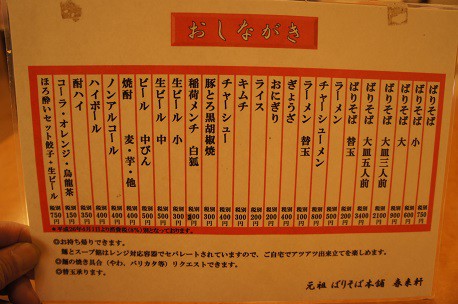 おしながき
ばりそば 税別 750円
ばりそば 小 税別 600円
ばりそば 大 税別 900円
ばりそば 大皿三人前 税別 2100円
ばりそば 大皿五人前 税別 3400円
ばりそば 替玉 税別 200円
ラーメン 税別 500円
チャーシューメン 税別 800円
ラーメン 替玉 税別 100円
ぎょうざ 税別 400円
おにぎり 税別 200円
ライス 税別
キムチ 税別 300円
チャーシュー 税別 400円
豚とろ黒胡椒焼 税別 300円
稲荷メンチ 白狐 税別
生ビール 小 税別 300円
生ビール 中 税別 500円
ビール 中びん 税別 500円
焼酎 麦・芋・他 税別 400円
ノンアルコール 税別 400円
ハイボール 税別 400円
酎ハイ 税別 350円
コーラ・オレンジ・烏龍茶 税別 150円
ほろ酔いセット餃子+生ビール 税別 750円
＊平成26年4月1日より消費税(8%)別となっております。
◎お持ち帰りできます。
麺とスープ餡はレンジ対応容器でセパレートされていますので、ご自宅でアツアツ出来立てを楽しめます。
◎麺の焼き具合（やわ、バリカタ等）リクエストできます。
◎替玉承ります。
元祖 ばりそば本舗 春来軒